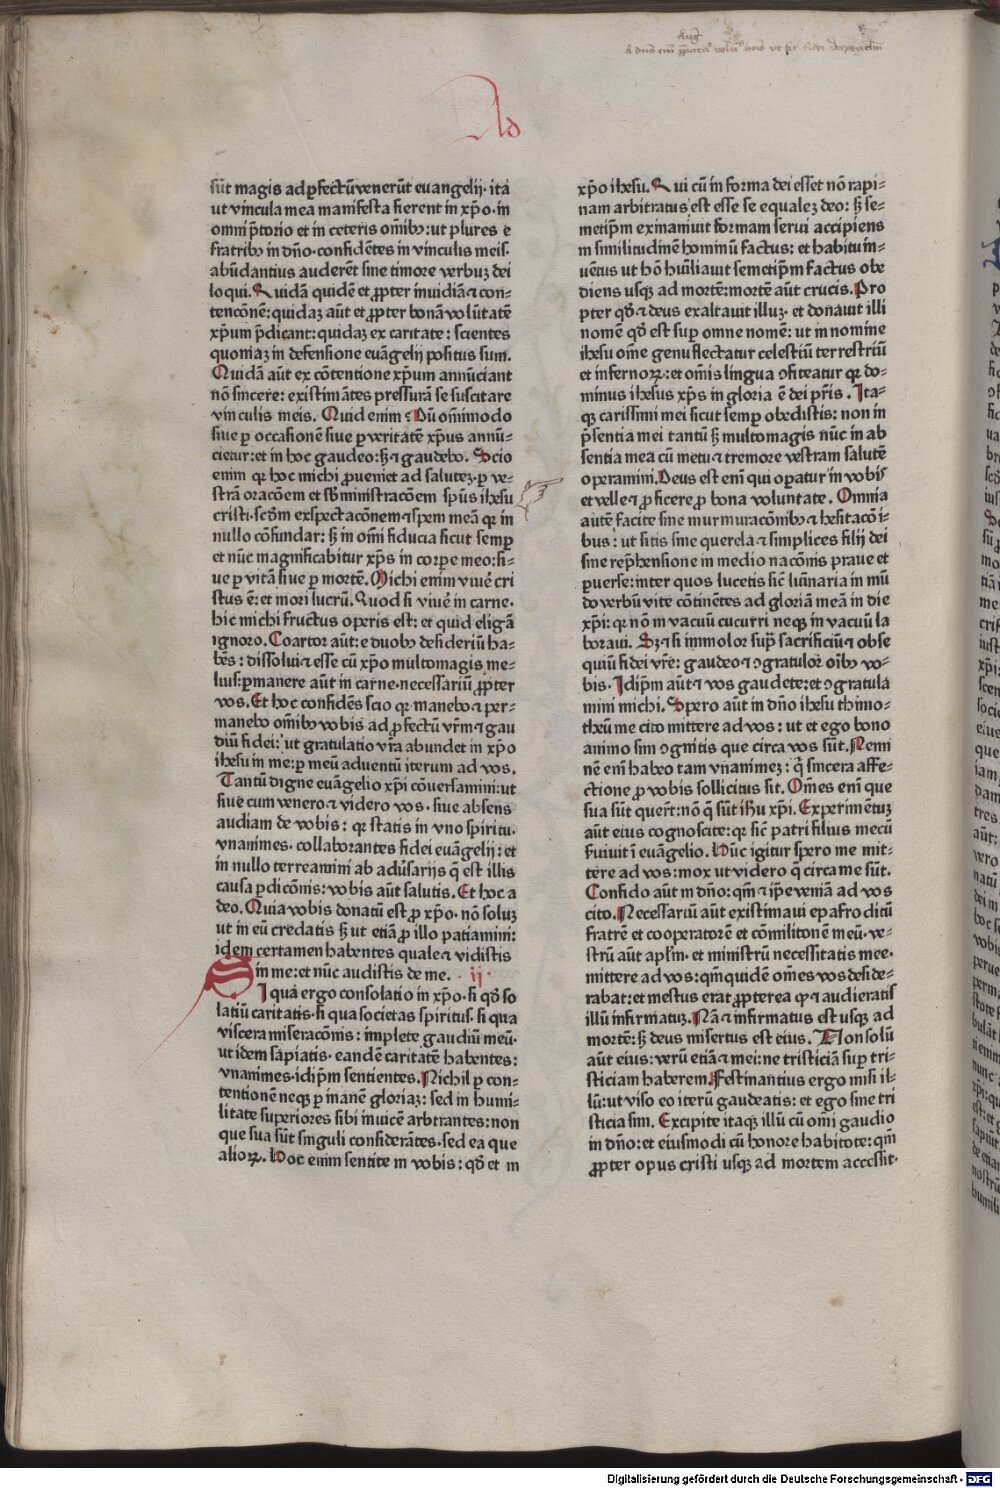 Ad
sūt magis ad ꝑfectū venerūt euangelij· ita
ut vincula mea manifesta fierent in xp̄o· in
omni p̄torio et in ceteris om̄ibꝫ: ut plures e
fratribꝫ in dn̄o· confidētes in vinculis meis·
abūdantius auderēt sine timore verbuꝫ dei
loqui. Quidā quidē et ꝓpter inuidiā ⁊ con⸗
tencōnē: quidaꝫ aūt et ꝓpter bonā volūtatē
xp̄um p̄dicant: quidaꝫ ex caritate: scientes
quoniaꝫ in defensione euāgelij positus sum.
Quidā aūt ex cōtentione xp̄um annūciant
nō sincere: existimātes pressurā se suscitare
vinculis meis. Quid enim? Dū om̄imodo
siue ꝑ occasionē siue ꝑ veritatē xp̄us annū⸗
cietur: et in hoc gaudeo: sꝫ ⁊ gaudebo. Scio
enim qꝛ hoc michi ꝓueniet ad saluteꝫ· ꝑ ve⸗
strā oracōem et sb̄ministracōem sp̄us ih̄esu
cristi· scd̄m exspectacōnem ⁊ spem meā qꝛ in
nullo cōfundar: sꝫ in om̄i fiducia sicut semꝑ
et nūc magnificabitur xp̄s in corꝑe meo: si⸗
ue ꝑ vitā siue ꝑ mortē. Michi enim viuē cri
stus ē: et mori lucrū. Quod si viuē in carne·
hic michi fructus operis est: et quid eligā
ignoro. Coartor aūt: e duobꝫ desideriū ha⸗
bēs: dissolui ⁊ esse cū xp̄o multomagis me⸗
lius: ꝑmanere aūt in carne· necessariū ꝓpter
vos. Et hoc confidēs scio qꝛ manebo ⁊ per⸗
manebo om̄ibꝫ vobis ad ꝓfectū vr̄m ⁊ gau
diū fidei: ut gratulatio vr̄a abundet in xp̄o
ih̄esu in me: ꝑ meū aduentū iterum ad vos.
Tantū digne euāgelio xp̄i cōuersamini: ut
siue cum venero ⁊ videro vos· siue absens
audiam de vobis: qꝛ statis in vno spiritu·
vnanimes· collaborantes fidei euāgelij: et
in nullo terreamini ab adūsarijs q̄ est illis
causa ꝑdicōnis: vobis aūt salutis. Et hoc a
deo. Quia vobis donatū est ꝓ xp̄o· nō soluꝫ
ut in eū credatis sꝫ ut etiā ꝓ illo patiamini:
idem certamen habentes quale ⁊ vidistis
in me: et nūc audistis de me. · ij ·
SI qua ergo consolatio in xp̄o· si qd̄ so
latiū caritatis· si qua societas spiritus· si qua
viscera miseracōnis: implete gaudiū meū·
ut idem sapiatis· eandē caritatē habentes:
vnanimes· idip̄m sentientes. Nichil ꝑ con⸗
tentionē neqꝫ ꝑ inanē gloriaꝫ: sed in humi⸗
litate superiores sibi inuicē arbtrantes: non
que sua sūt singuli considerātes· sed ea que
alioꝝ. Hoc enim sentite in vobis: qd̄ et in
xp̄o ih̄esu. Qui cū in forma dei esset nō rapi⸗
nam arbitratus est esse se equaleꝫ deo: sꝫ se⸗
metip̄m exinaniuit formam serui accipiens
in similitudinē hominū factus: et habitu in⸗
uētus ut hō hūiliauit semetip̄m factus obe
diens usqꝫ ad mortē: mortē aūt crucis. Pro
pter qd̄ ⁊ deus exaltauit illuꝫ· et donauit illi
nomē qd̄ est suꝑ omne nomē: ut in nomine
ih̄esu om̄e genu flectatur celestiū terrestriū
et infernoꝝ: et om̄is lingua ꝯfiteatur qꝛ do⸗
minus ih̄esus xp̄s in gloria ē dei pr̄is. Ita⸗
qꝫ carissimi mei sicut semꝑ obedistis: non in
p̄sentia mei tantū sꝫ multomagis nūc in ab
sentia mea cū metu ⁊ tremore vestram salutē
operamini. Deus est eni̅ qui oꝑatur in vobis
et velle ⁊ ꝓficere ꝓ bona voluntate. Omnia
autē facite sine murmuracōnibꝫ ⁊ hesitacōi⸗
bus: ut sitis sine querela ⁊ simplices filij dei
sine rep̄hensione in medio nacōnis praue et
ꝑuerse: inter quos lucetis sic̄ lūinaria in mū
do verbū vite cōtinētes ad gloriā meā in die
xp̄i: qꝛ nō in vacuū cucurri neqꝫ in vacuū la
boraui. Sꝫ ⁊ si immolor sup̄ sacrificiū ⁊ obse
quiū fidei vr̄e: gaudeo ⁊ ꝯgratulor oībꝫ vo⸗
bis. Idip̄m aūt ⁊ vos gaudete: et ꝯgratula
mini michi. Spero aūt in dn̄o ih̄esu thimo⸗
theū me cito mittere ad vos: ut et ego bono
animo sim ꝯgnitis que circa vos sūt. Nemi
nē eni̅ habeo tam vnanimeꝫ: q̄ sincera affe⸗
ctione ꝓ vobis sollicitus sit. Om̄es eni̅ que
sua sūt querūt: nō q̄ sūt ih̄u xp̄i. Experimētuꝫ
aūt eius cognoscite: qꝛ sic̄ patri filius mecū
ẜuiuit ī euāgelio. Hūc igitur spero me mit⸗
tere ad vos: mox ut videro q̄ circa me sūt.
Confido aūt in dn̄o: qm̄ ⁊ ip̄e veniā ad vos
cito. Necessariū aūt existimaui epafroditū
fratrē et cooperatorē et cōmilitonē meū· ve⸗
strū aūt apl̄m· et ministrū necessitatis mee·
mittere ad vos: qm̄ quidē om̄es vos deside⸗
rabat: et mestus erat ꝓpterea qꝫ ⁊ audieratis
illū infirmatuꝫ. Nā ⁊ infirmatus est usqꝫ ad
mortē: sꝫ deus misertus est eius. Non solū
aūt eius: verū etiā ⁊ mei: ne tristiciā suꝑ tri⸗
sticiam haberem. Festinantius ergo misi il⸗
lū: ut viso eo iterū gaudeatis: et ego sine tri
sticia sim. Excipite itaqꝫ illū cū om̄i gaudio
in dn̄o: et eiusmodi cū honore habitote: qm̄
ꝓpter opus cristi usqꝫ ad mortem accessit·
Digitalisierung gefördert durch die Deutsche Forschungsgemeinschaft - DFG